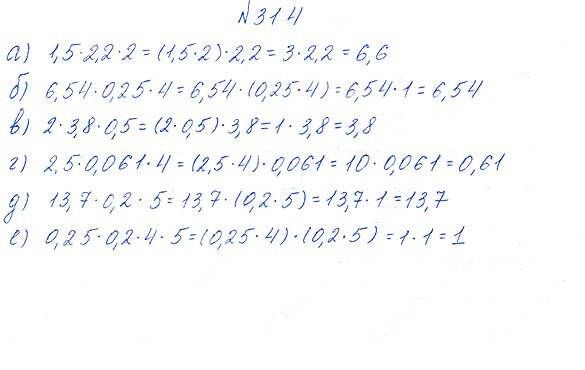 №314
а) 1,5·2,2·2=(1,5·2)·2,2=3·2,2=6,6
б) 6,54·0,25·4=6,54·(0,25·4)=6,54·1=6,54
в) 2·3,8·0,5=(2·0,5)·3,8=1·3,8=3,8
г) 2,5·0,061·4=(2,5·4)·0,061=10·0,061=0,61
д) 13,7·0,2·5=13,7·(0,2·5)=13,7·1=13,7
е) 0,25·0,2·4·5=(0,25·4)·(0,2·5)=1·1=1